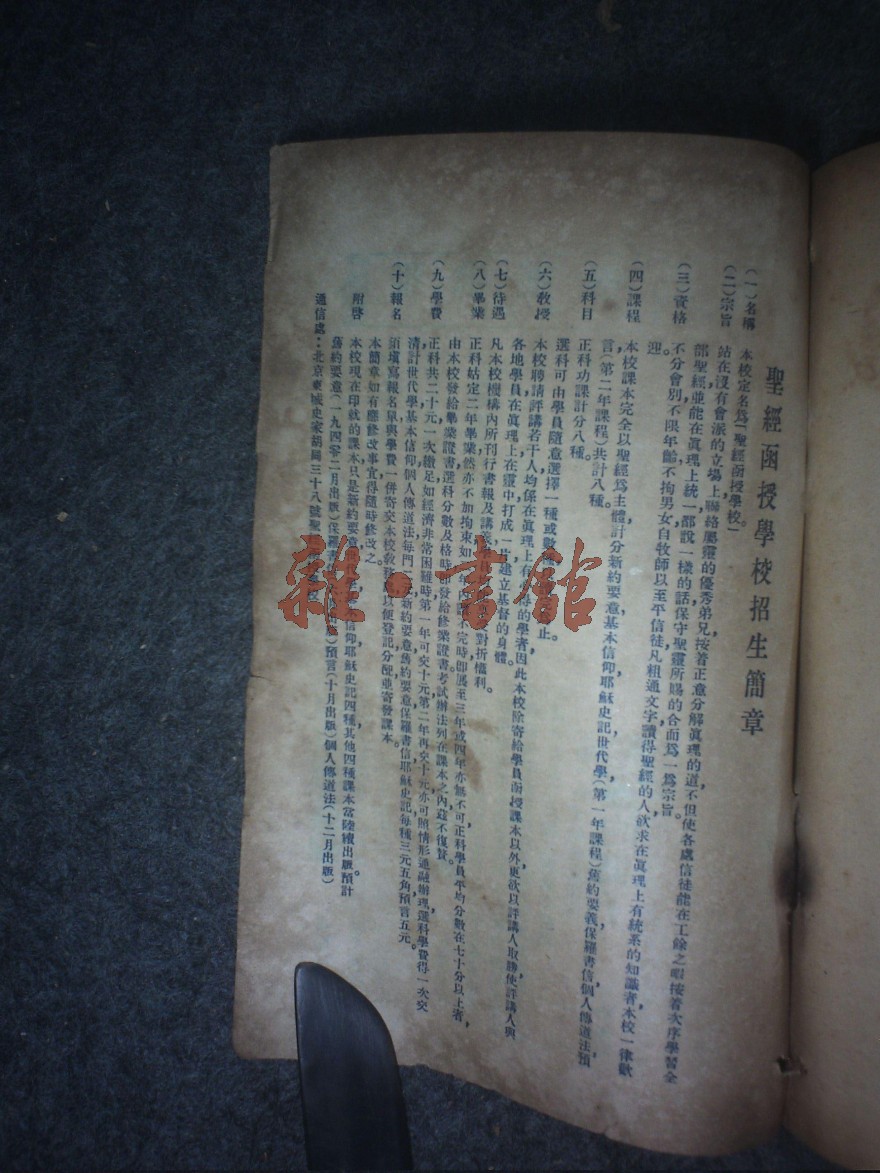 聖經函授學校招生簡章
(一)名稱　本校定名爲「聖經函授學校」
(二)宗旨　站在沒有會派的立場上聯絡屬靈的優秀弟兄按着正意分解眞理的道不但使各處信徒能在工餘之暇按着次序學習全
部聖經並能在眞理上統一都說一樣的話保守聖靈所賜的合而爲一爲宗旨。
(三)資格　不分會別不限年齡不拘男女自牧師以至平信徒凡粗通文字讀得聖經的人欲求在眞理上有統系的知識者本校一律歡
迎。
(四)課程　本校課本完全以聖經爲主體計分新約要意基本信仰耶穌史記世代學(第一年課程)舊約要義保羅書信個人傳道法預
言(第二年課程)共計八種。
(五)科目　正科功課計分八種。
選科可由學員隨意選擇一種或數
止
(六)敎授　本校聘請評講若干人均係在眞理上有
得的學者因此本校除寄給學員函授課本以外更欲以評講人取勝使評講人與
各地學員在眞理上在靈中打成一片建立基督的身體。
(七)待遇　凡本校機構內所刊行書報及講義
對折權利。
(八)畢業　正科姑定二年畢業然亦不加拘束如二年內
不完時即展至三年或四年亦無不可正科學員平均分數在七十分以上者,
由本校發給畢業證書選科分數及格時
發給修業證書考試辦法列在課本之內茲不復贅
(九)學費　正科共二十元一次繳足如經濟非常困難時第一年可交十元第二年再交十元亦可照情形通融辦理選科學費得一次交
清計世代學基本信仰個人傳道法每門二元新約要意舊約要意保羅書信耶穌史記每種三元五角預言五元。
(十)報名　須塡寫報名單與學費一併寄交本校敎務
以便登記分配並寄發課本。
本簡章如有應修改事宜得隨時修改之。
附啓　本校現在印就的課本只是新約要意
信仰耶穌史記四種其他四種課本當陸續出版預計
舊約要意(一九四零二月出版)保羅書
版)預言(十月出版)個人傳道法(十二月出版)
通信處:北京東城史家胡同三十八號聖
雜·書館